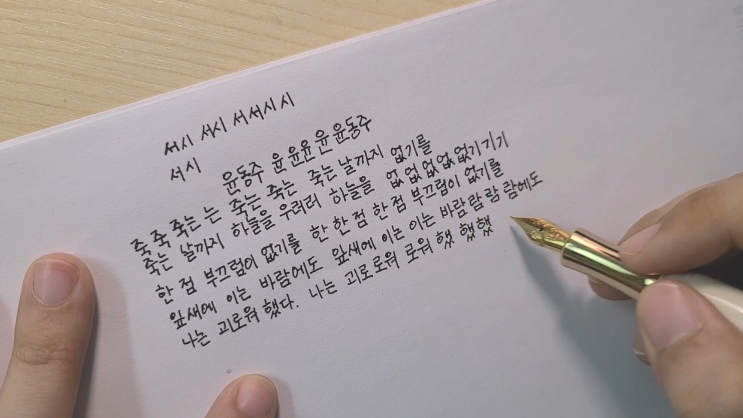 서시 서시 서서시시
서시
윤동주 윤윤윤윤윤동주
죽죽죽는는 죽는죽는 죽는날까지 없기를
죽는 날까지 하늘을 우러러 하늘을 없없없없없기기기
한 점 부끄럼이 없기를 한 한 점 한 점 부끄럼이 없기를
잎새에 이는 바람에도 잎새에 이는 이는 바람람람람에도
나는 괴로워 했다. 나는 괴로로워 로워 했 했했